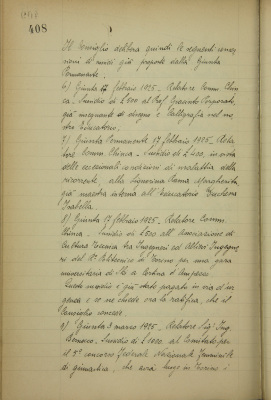 408
Il Consiglio delibera quindi le seguenti conces
sioni di sussidi già proposte dalla Giunta
Permanente.
6) Giunta 17 febbraio 1925. Relatore Comm.
Sussidio di L. 500 al Prof.
già insegnante di disegno e Calligrafia nel no
stro Educatorio.
7) Giunta Permanente 17 febbraio 1925. Rela
tore Comm. Sussidio di L. 400, in vista
delle eccezionali condizioni di malattia della
ricorrente alla Signorina Margherita
già maestra interna all'Educatorio Duchessa
Isabella.
8) Giunta 17 febbraio 1925. Relatore Comm.
Sussidio di L. 500 all'Associazione di
Cultura fra Ingegneri ed Allievi Ingegne
ri del R. Politecnico di Torino per una gara
universitaria di Ski a Cortina d'Ampezzo.
Questo sussidio è già stato pagato in via d'ur
genza e se ne chiede ora la ratifica, che il
Consiglio concede.
9) Giunta 3 marzo 1925. Relatore Sig. Ing.
Sussidio di L. 1000. al Comitato per
il 2° concorso Federale Nazionale Femminile
di ginnastica, che avrà luogo in Torino i